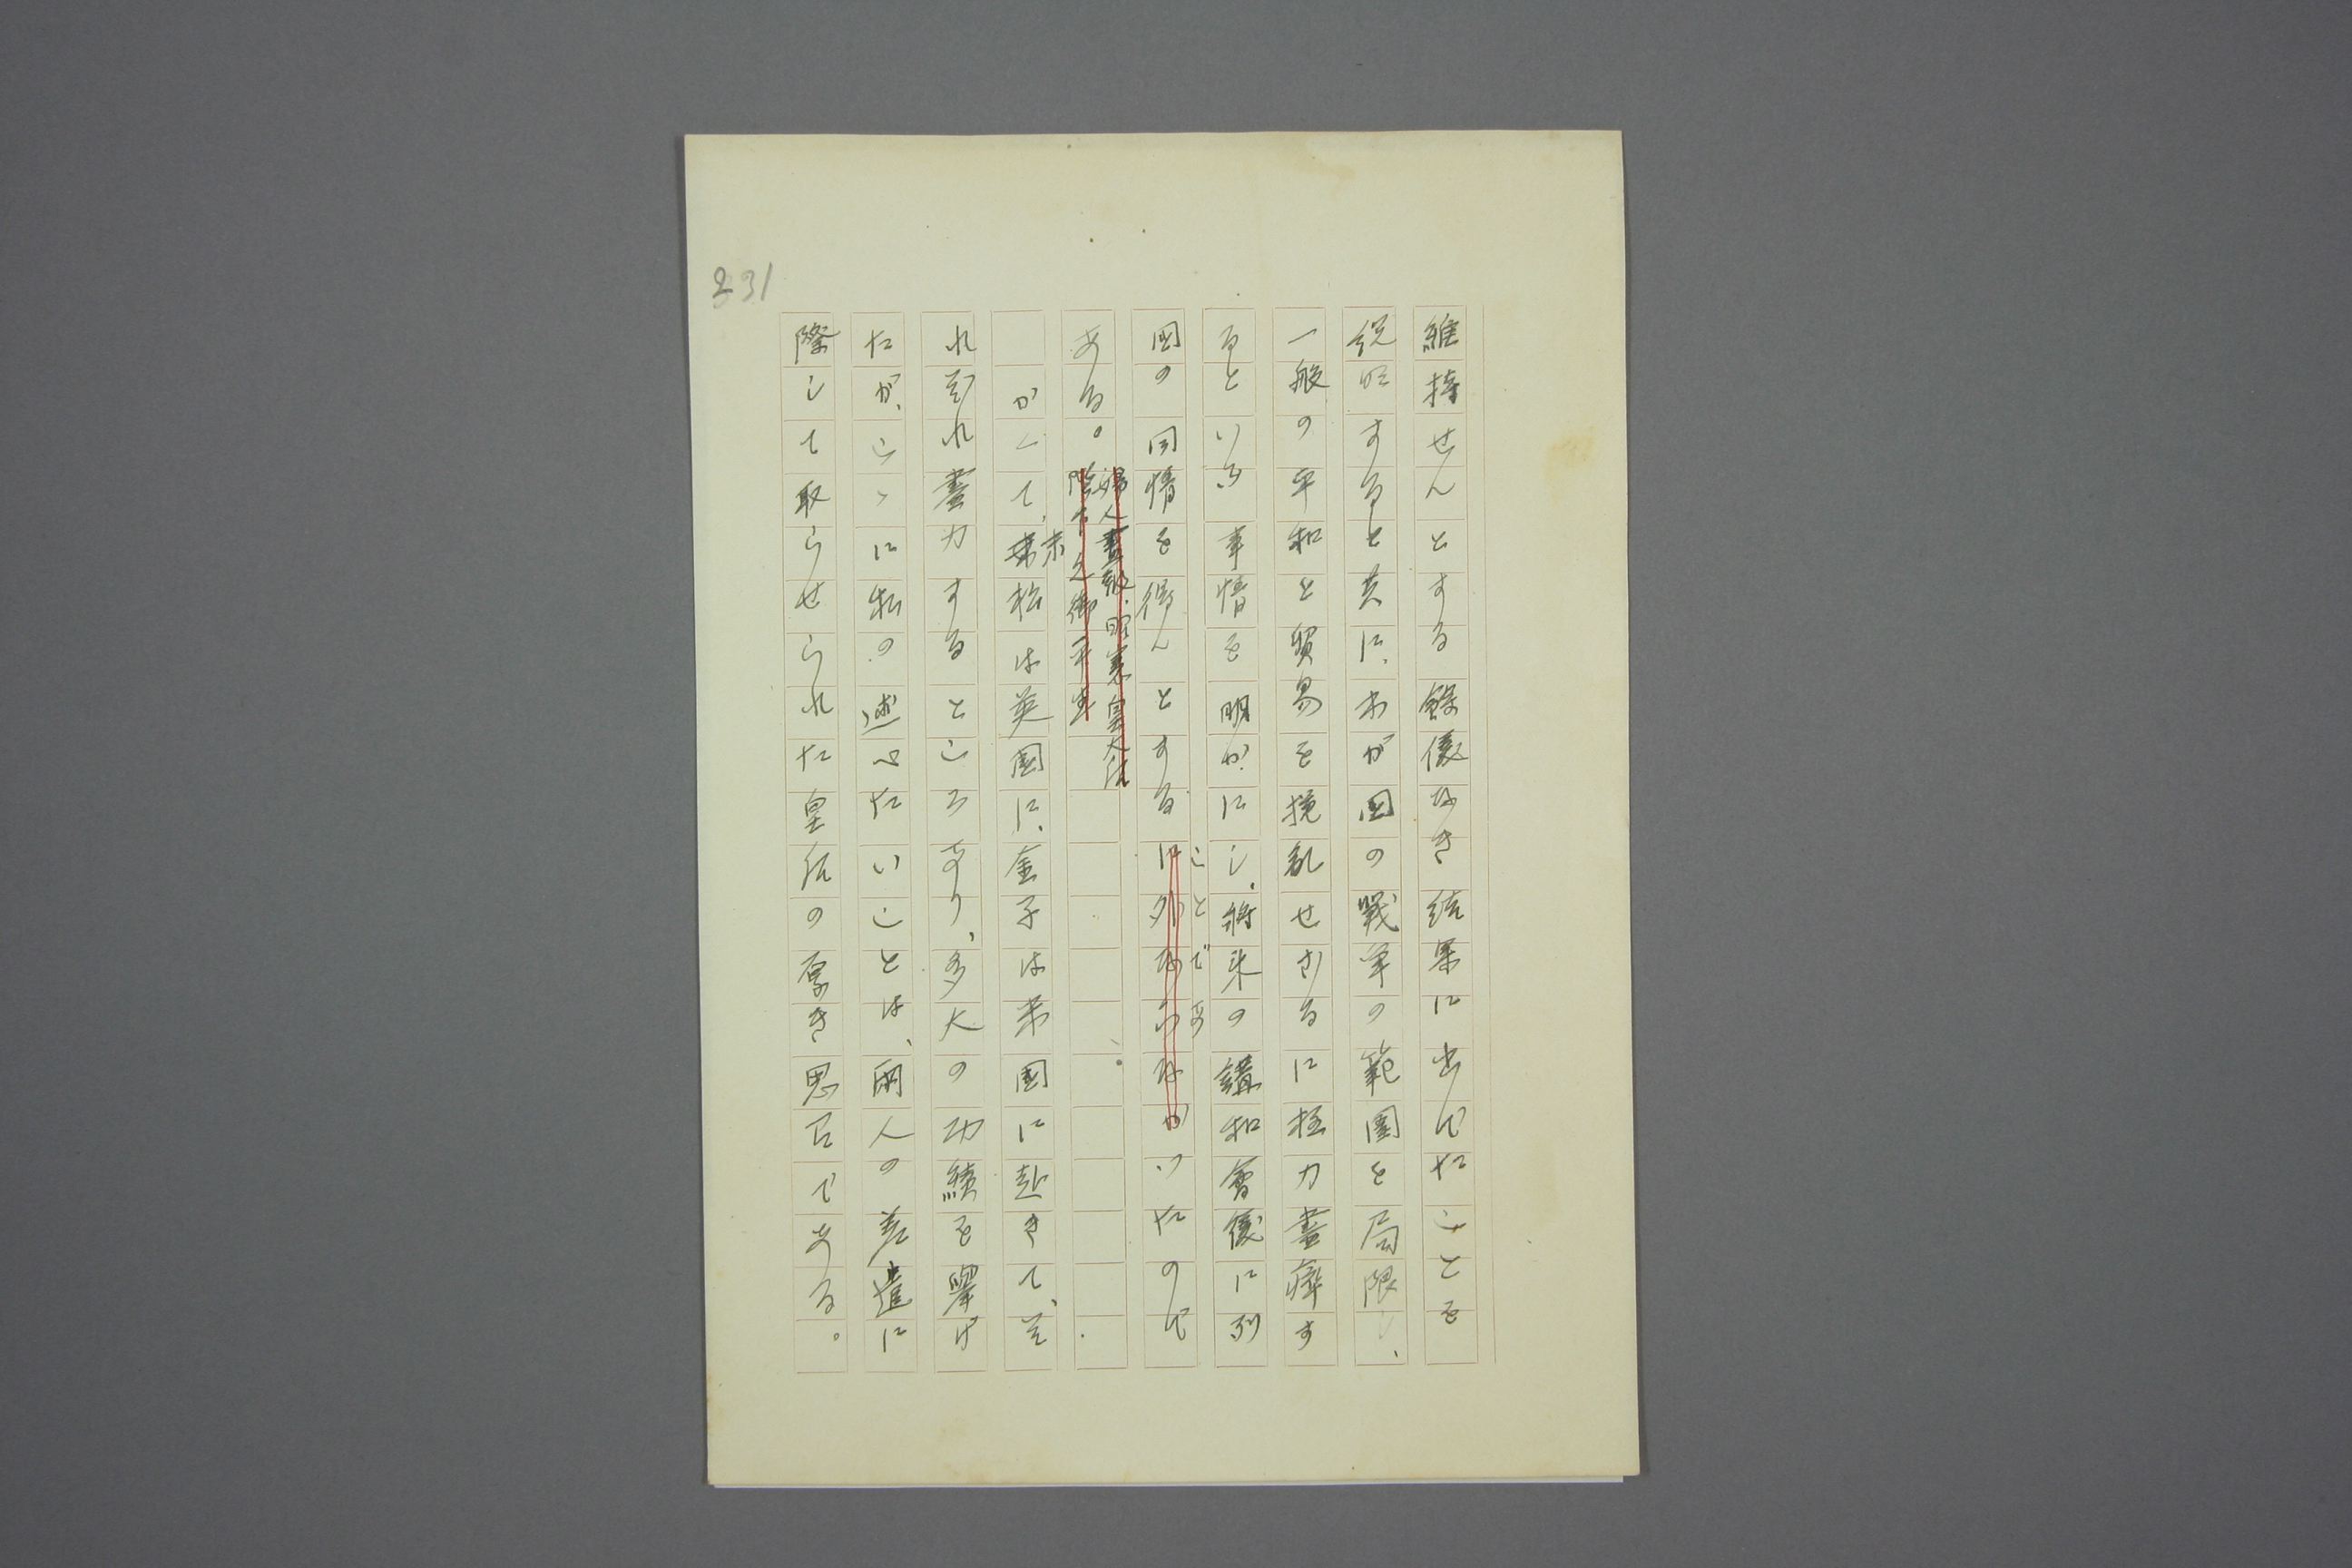 231
維持せんとする餘儀なき結果に出でたことを
説明すると共に、本が国の戰争の範圍を局限し、
一般の平和と貿易を攪乱せざるに極力盡瘁す
るといふ事情を明かにし、將来の講和會議に列
国の同情を得んとするにことであ外ならなかつたので
ある。
婦人畫報、昭憲皇太后
陛下之御平生
かくて、末松は英國に、金子は米國に赴きて、そ
れぞれ盡力するところあり、多大の功績を擧げ
たが、こゝに私の述べたいことは、両人の差遣に
際して取らせられた皇后の厚き思召である。